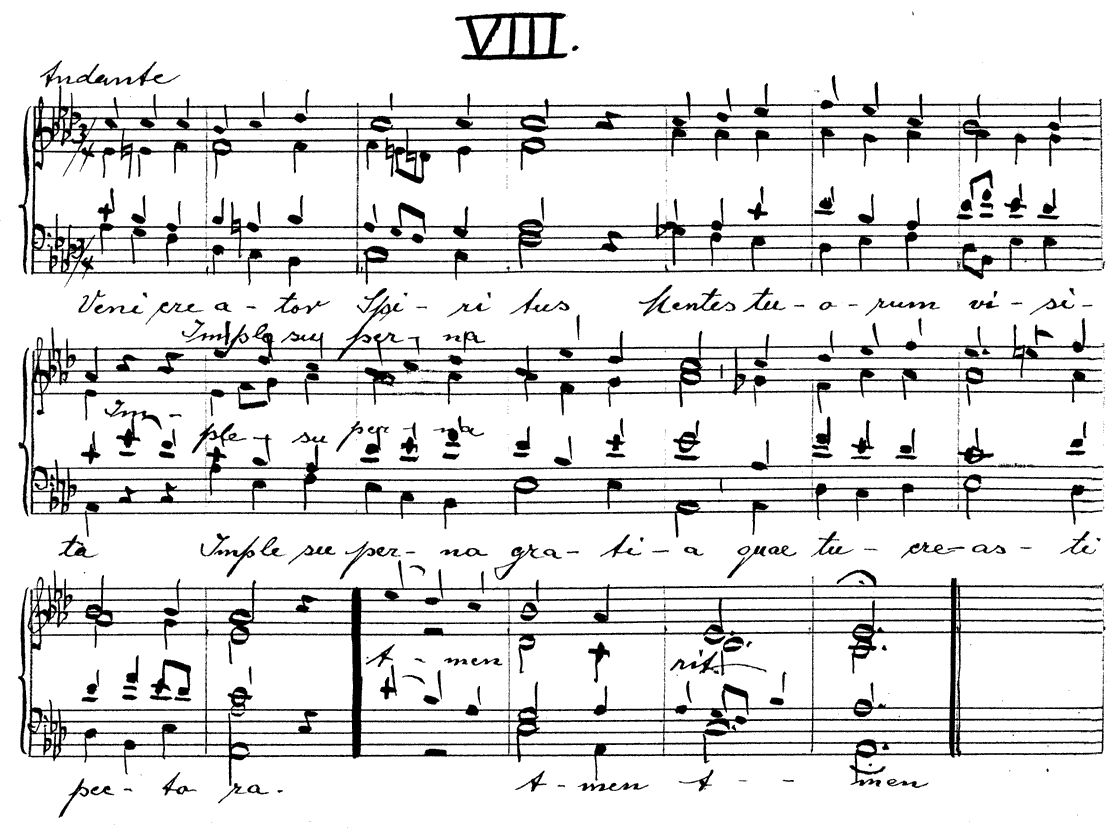 VIII.
Andante
Veni cre a - tor Spi - ri tus Mentes tu - o - rum vi - si -
Imple su per - na
Im - ple - su per - na
ta Imple su per - na gra - ti - a quae tu - cre - as - ti
A - men rit.
pec - to ra. A - men A - - men